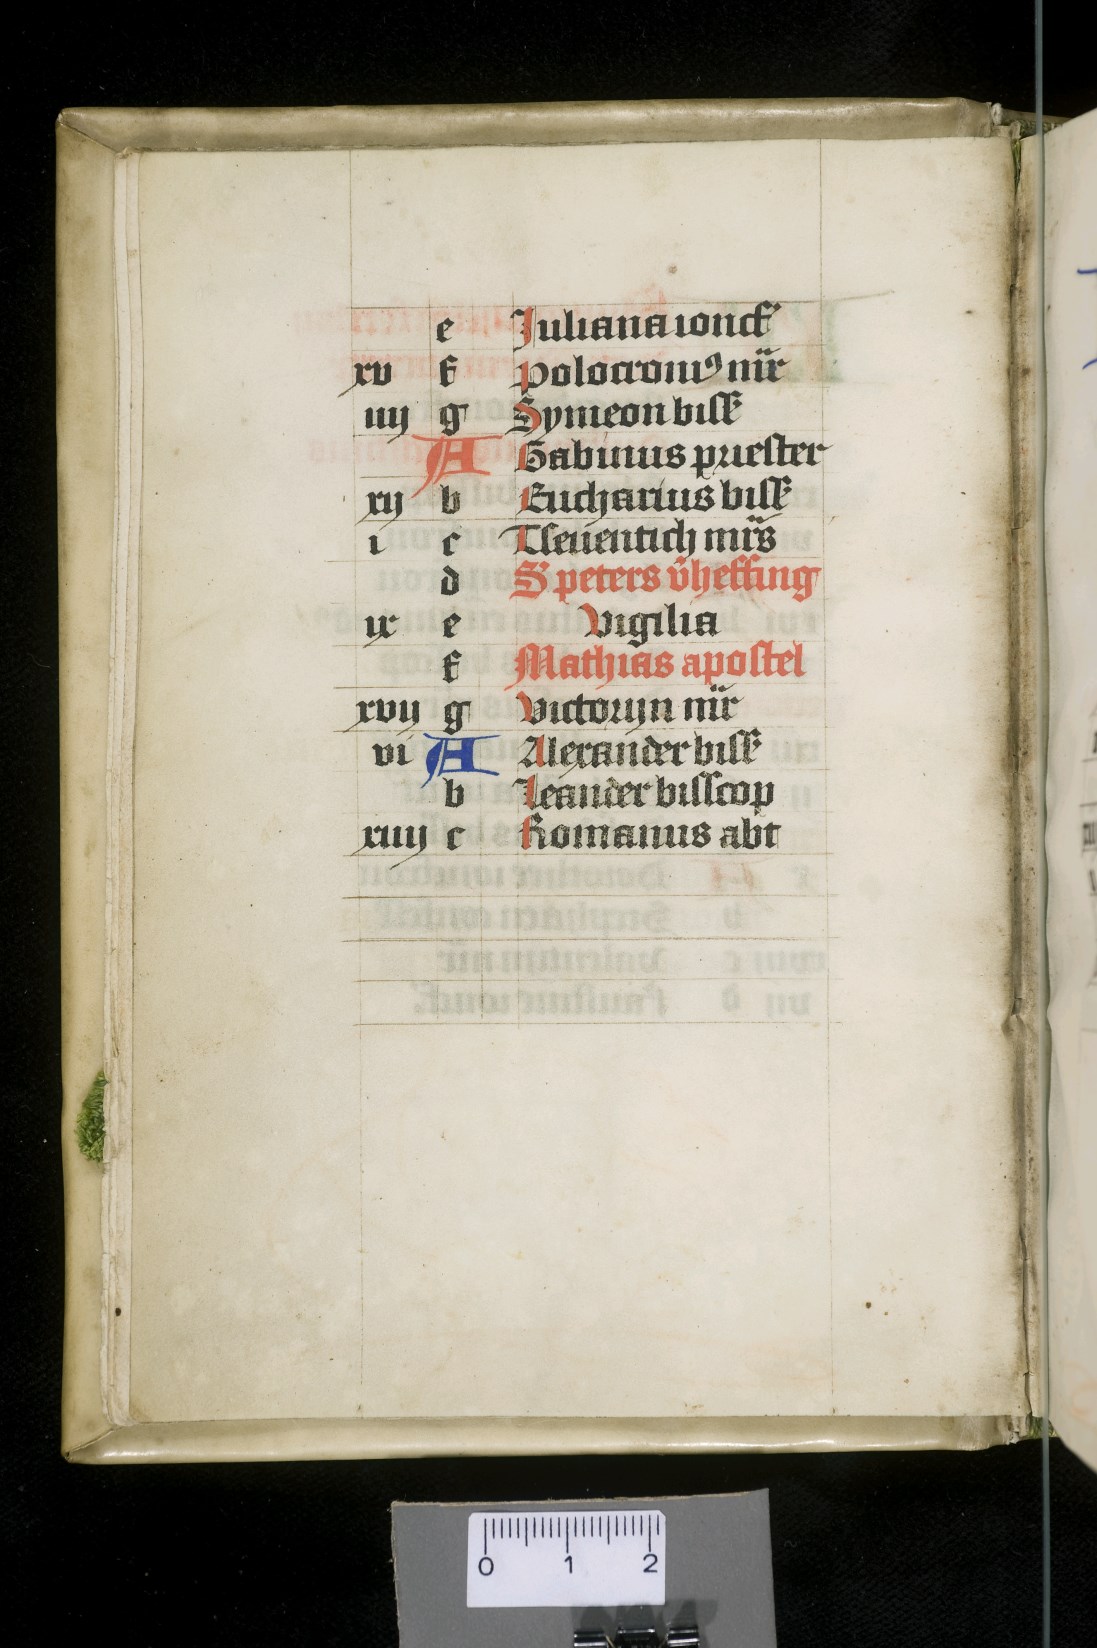 e Juliana ioncf̄
xv f Polocroniꝰ mr̄
iiij g Symeon bissē
A Gabinus priester
xij b Eucharius bissē
i c Tseuentich mrs̄
d S peters v̄heffing
ix e Vigilia
f Mathias apostel
xvij g Victorijn mr̄
vi A Alexander bissē
b Leander bisscop
xiiij c Romanus abt
0 1 2